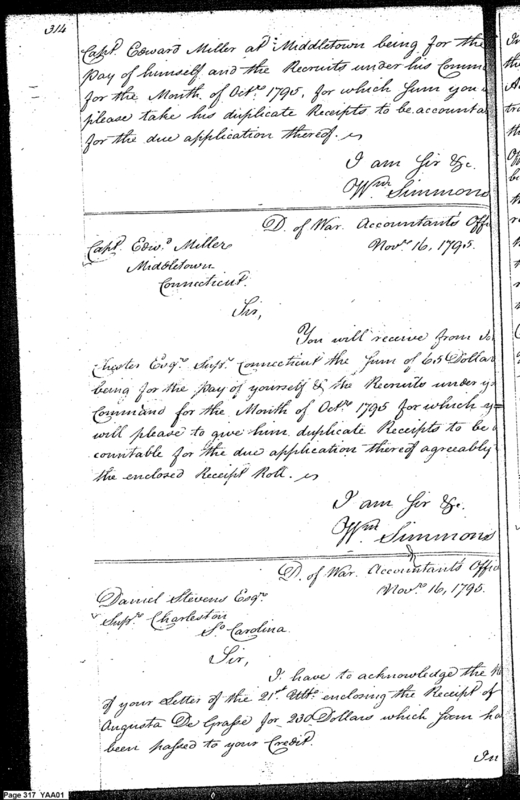 314
Capt. Edward Miller at Middletown being for the
pay of himself and the Recruits under his Comm
for the Month of Octr. 1795, for which sum you
please take his duplicate Receipts to be accounta
for the due application thereof.
I am Sir &c.
Wm. Simmons
D. of War. Accountant's Offi
Novr. 16, 1795.
Capt. Edwd. Miller
Middletown
Connecticut.
Sir,
You will receive from
Chester Esqr. Supr. Connecticut the sum of 65 Dollar
being for the pay of yourself & the Recruits under yo
Command for the Month of Octr. 1795 for which y
will please to give him duplicate Receipts to be
countable for the due application thereof agreeably
the enclosed Receipt Roll.
I am Sir &c.
Wm. Simmons
D. of War. Accountants Offic
Novr. 16, 1795.
Daniel Stevens Esqr.
Supr. Charleston
So. Carolina
Sir,
I have to acknowledge the
of your Letter of the 21st. Ulto. enclosing the Receipt of
Augusta De Grasse for 230 Dollars which sum ha
been passed to your Credit.
In
Page 317 YAA01